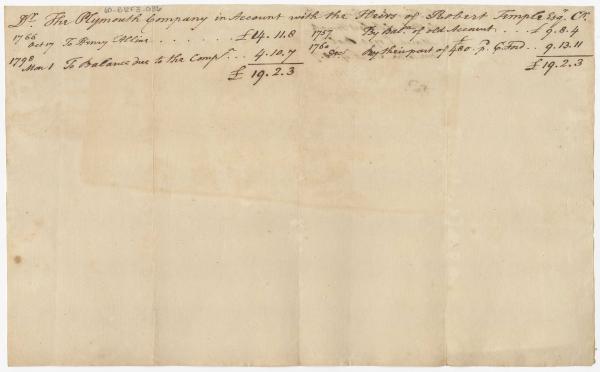 Dr. The Plymouth Company in Account with the Heirs of Robert Temple Esqr. Cr.
1766
Octr 7 To Henry Alline . . . . . . . £14.11.8
1798
Mar 1 To Balance due to the Compy . . . 4.10.7
£19.2.3
1757 By Bale. of old Account . . . . £9.8.4
1760
Decr By their part of £480 p. G. Ford . . 9.13.11
£19.2.3